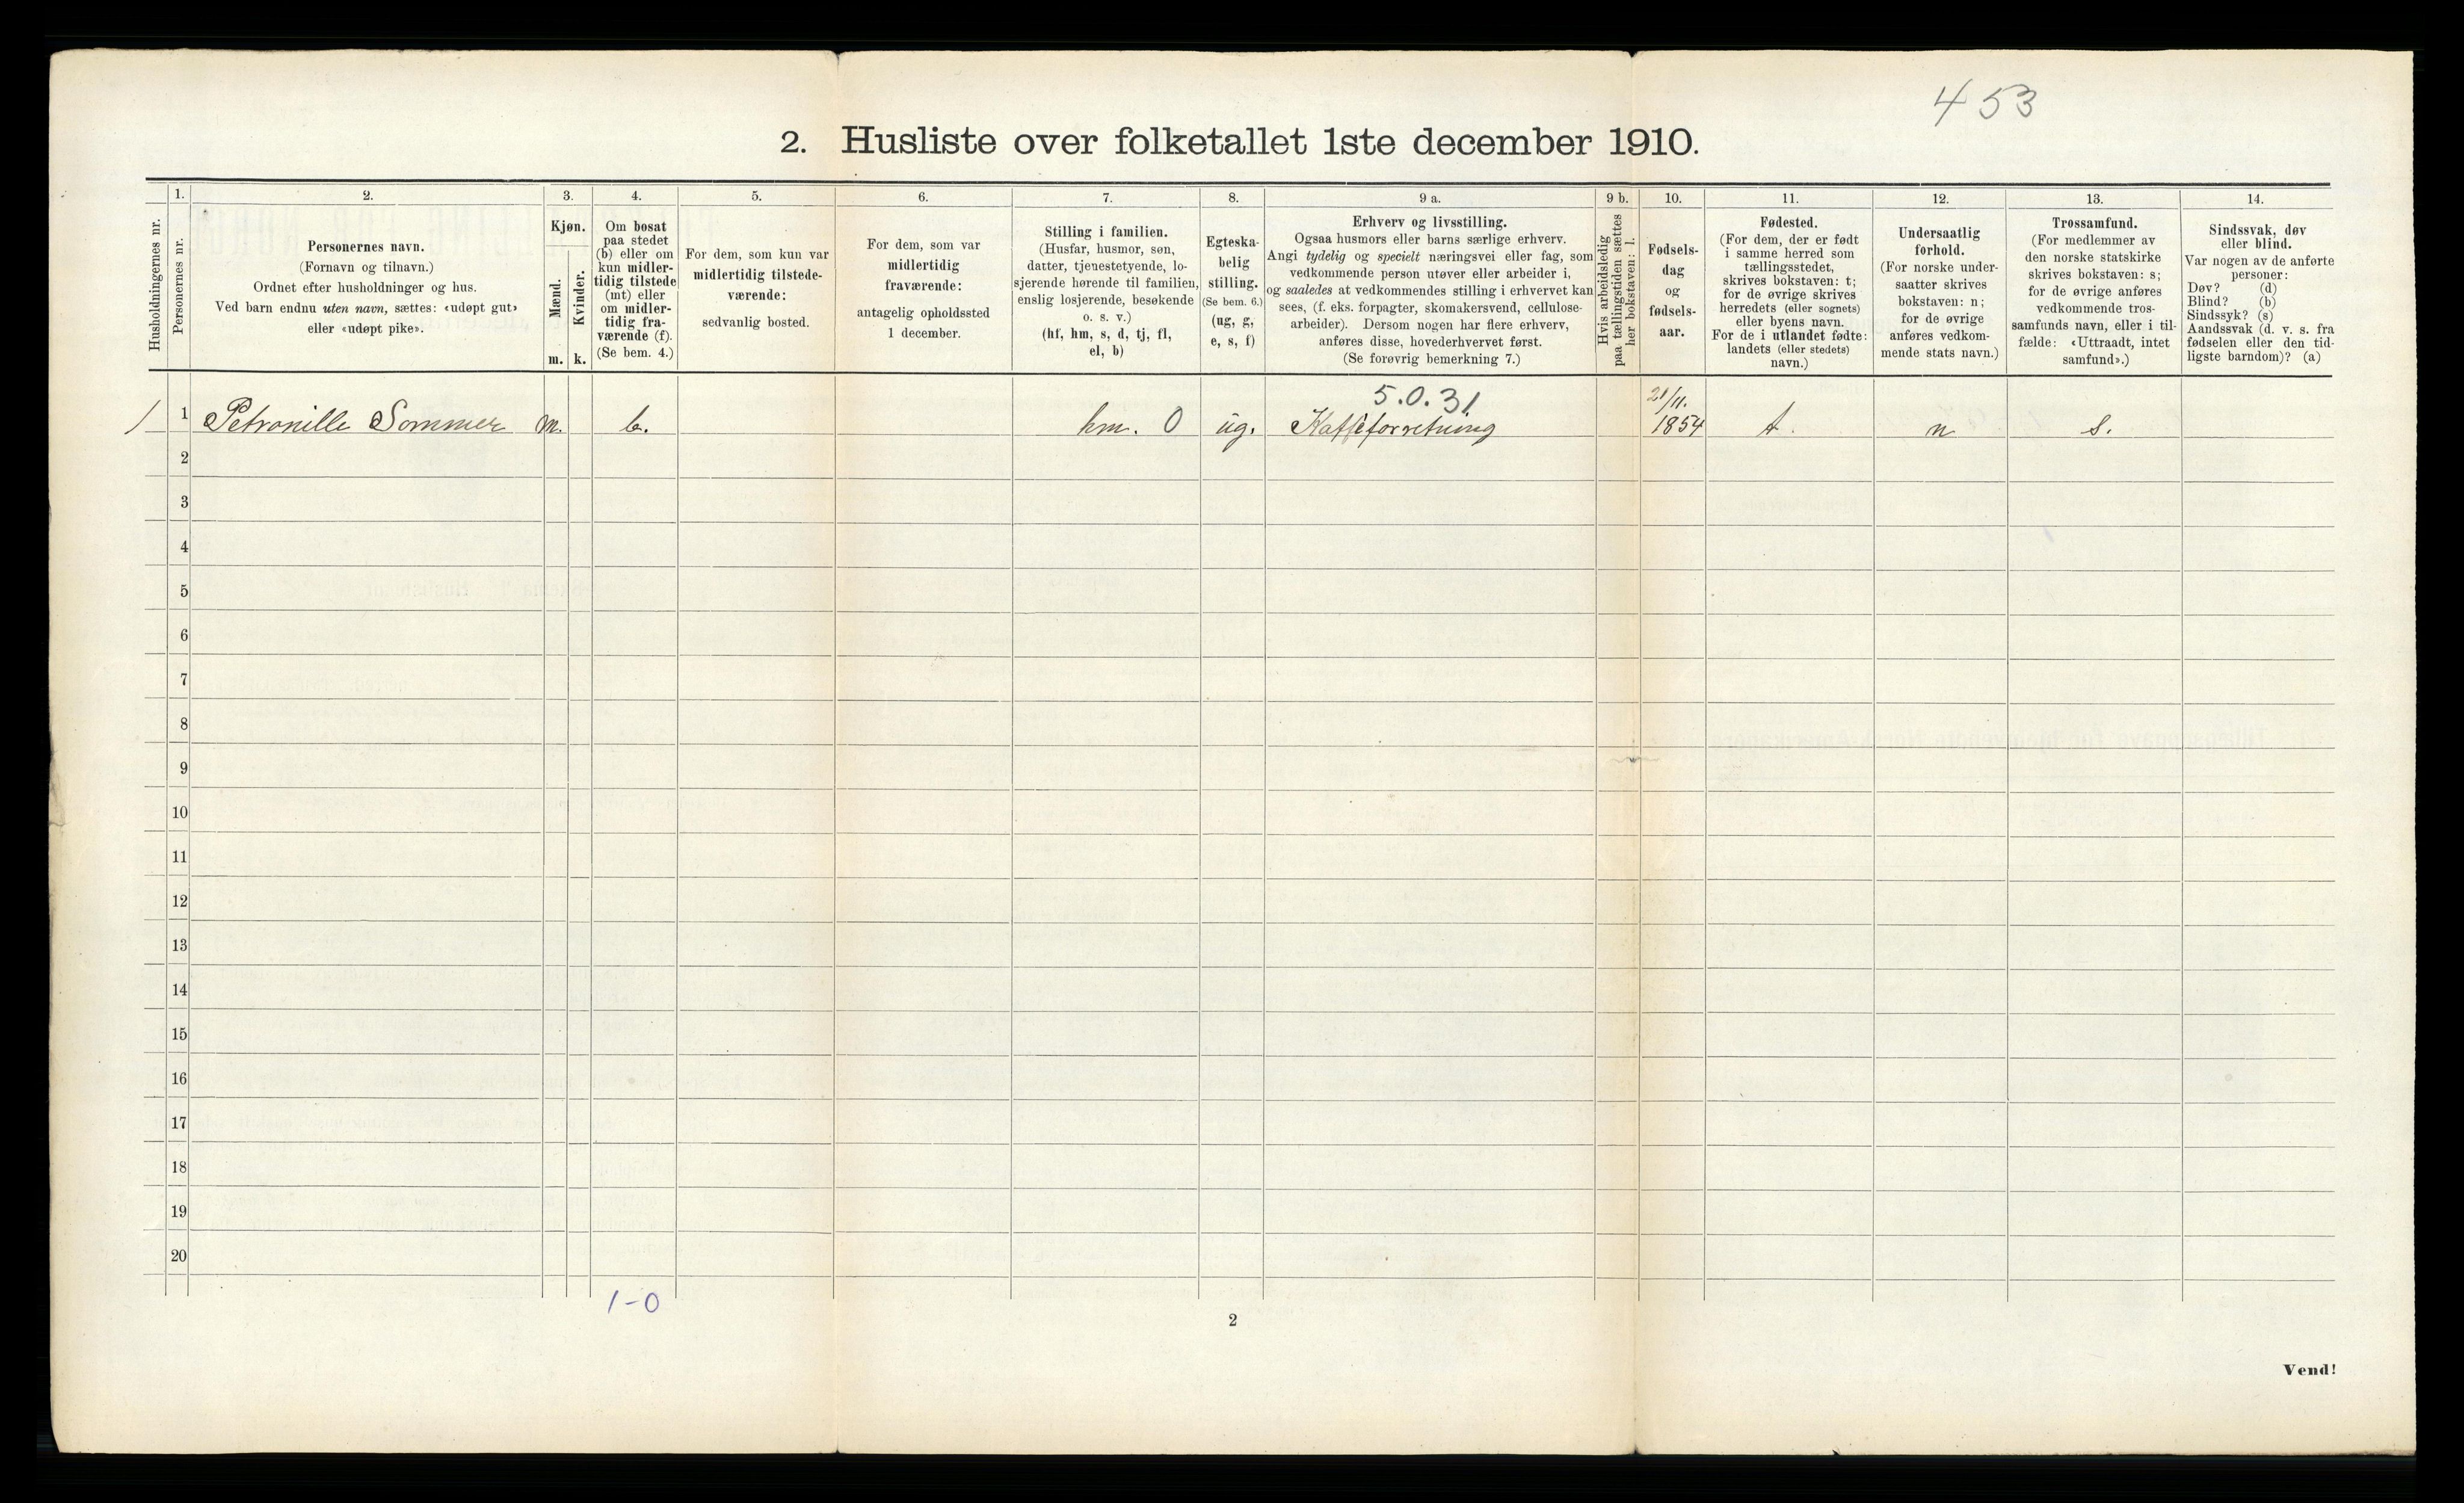 453
2. Husliste over folketallet 1ste december 1910.
Husholdningernes nr.
1.
Personernes nr.
2.
Personernes navn.
(Fornavn og tilnavn.)
Ordnet efter husholdninger og hus.
Ved barn endnu uten navn, sættes: «udøpt gut»
eller «udøpt pike».
3.
Kjøn.
Mænd.
m.
Kvinder.
k.
4.
Om bosat
paa stedet
(b) eller om
kun midler-
tidig tilstede
(mt) eller
om midler-
tidig fra-
værende (f).
(Se bem. 4.)
5.
For dem, som kun var
midlertidig tilstede-
værende:
sedvanlig bosted.
6.
For dem, som var
midlertidig
fraværende:
antagelig opholdssted
1 december.
7.
Stilling i familien.
(Husfar, husmor, søn,
datter, tjenestetyende, lo-
sjerende hørende til familien,
enslig losjerende, besøkende
o. s. v.)
(hf, hm, s, d, tj, fl,
el, b)
8.
Egteska-
belig
stilling.
(Se bem. 6.)
(ug, g,
e, s, f)
9 a.
Erhverv og livsstilling.
Ogsaa husmors eller barns særlige erhverv.
Angi tydelig og specielt næringsvei eller fag, som
vedkommende person utøver eller arbeider i,
og saaledes at vedkommendes stilling i erhvervet kan
sees, (f. eks. forpagter, skomakersvend, cellulose-
arbeider). Dersom nogen har flere erhverv,
anføres disse, hovederhvervet først.
(Se forøvrig bemerkning 7.)
9 b.
Hvis arbeidsledig
paa tællingstiden sættes
her bokstaven: l.
10.
Fødsels-
dag
og
fødsels-
aar.
11.
Fødested.
(For dem, der er født
i samme herred som
tællingsstedet,
skrives bokstaven: t;
for de øvrige skrives
herredets (eller sognets)
eller byens navn.
For de i utlandet fødte:
landets (eller stedets)
navn.)
12.
Undersaatlig
forhold.
(For norske under-
saatter skrives
bokstaven: n;
for de øvrige
anføres vedkom-
mende stats navn.)
13.
Trossamfund.
(For medlemmer av
den norske statskirke
skrives bokstaven: s;
for de øvrige anføres
vedkommende tros-
samfunds navn, eller i til-
fælde: «Uttraadt, intet
samfund».)
14.
Sindssvak, døv
eller blind.
Var nogen av de anførte
personer:
Døv? (d)
Blind? (b)
Sindssyk? (s)
Aandssvak (d. v. s. fra
fødselen eller den tid-
ligste barndom)? (a)
5.0.31 21/11.
1 1 Petronille Sommer m. b. hm. 0 ug. Kaffeforretning 1854 t. n s.
2
3
4
5
6
7
8
9
10
11
12
13
14
15
16
17
18
19
20
1-0
2
Vend!